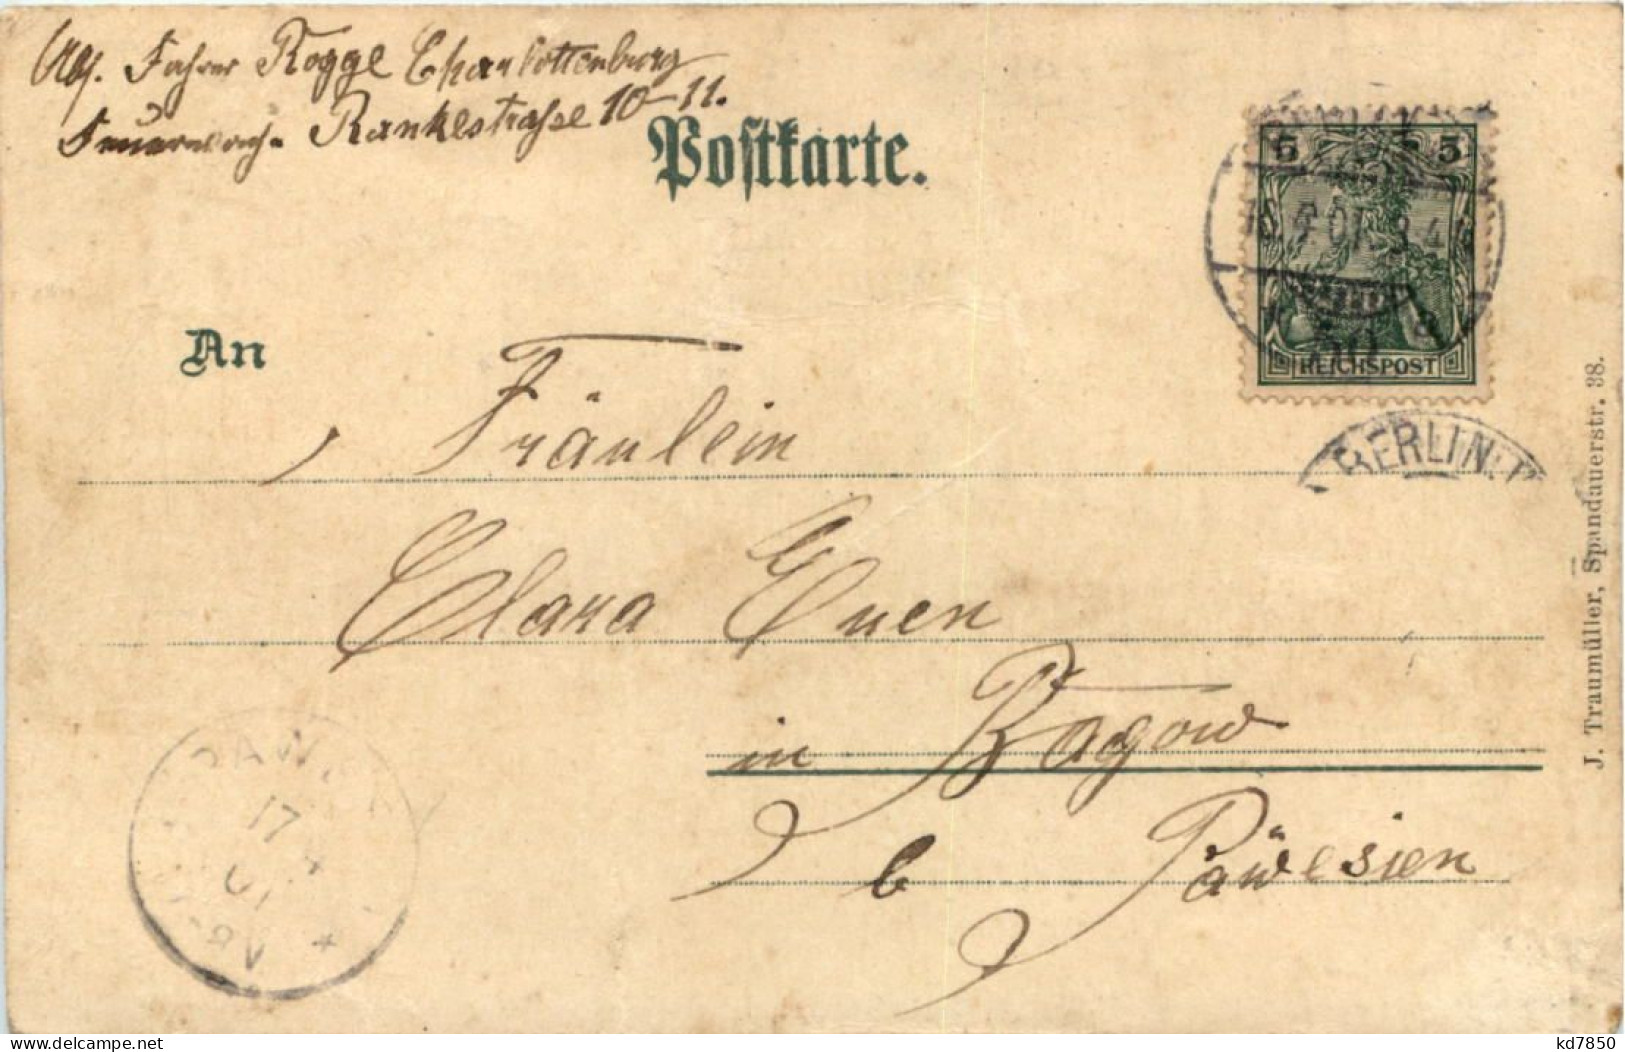 Abs. Fahrer Rogge Charlottenburg
Feuerwache Rankestraße 10-11.
Postkarte.
5 5
REICHSPOST
BERLIN.
An
Fräulein
Clara
in Bagow
b Päwesien
17
01
J. Traumüller, Spandauerstr. 38.
kd7850